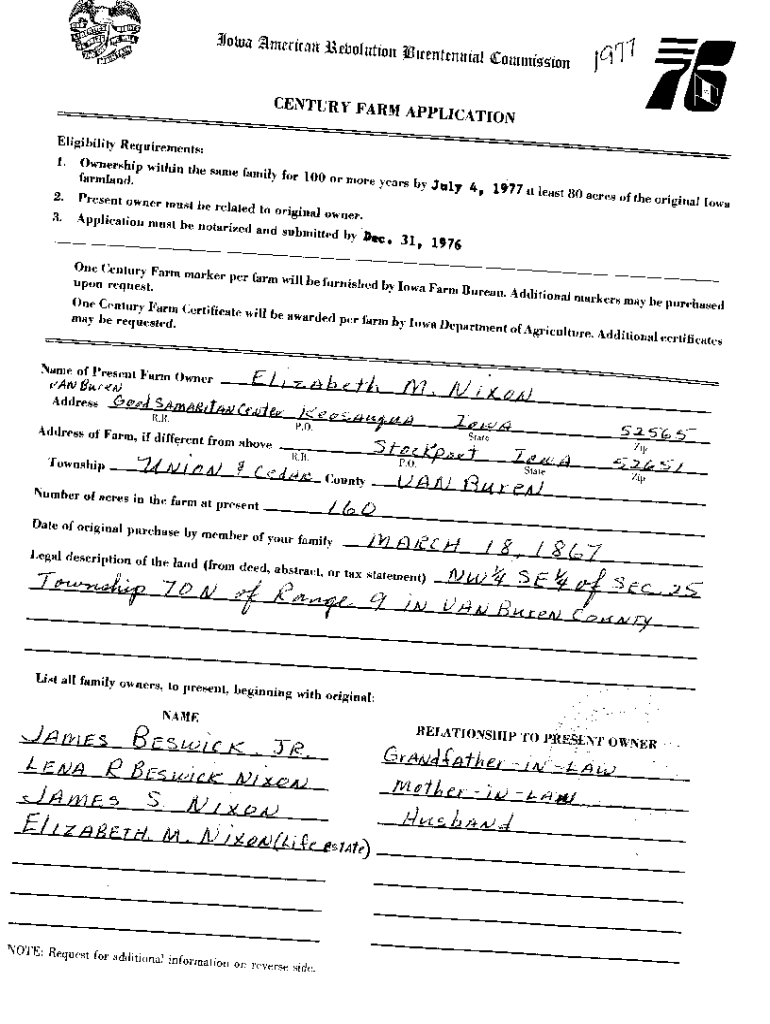 Iowa American Revolution Bicentennial Commission 1977
76
CENTURY FARM APPLICATION
Eligibility Requirements:
1. Ownership within the same family for 100 or more years by July 4, 1977 at least 80 acres of the original Iowa
farmland.
2. Present owner must be related to original owner.
3. Application must be notarized and submitted by Dec. 31, 1976
One Century Farm marker per farm will be furnished by Iowa Farm Bureau. Additional markers may be purchased
upon request.
One Century Farm Certificate will be awarded per farm by Iowa Department of Agriculture. Additional certificates
may be requested.
Name of Present Farm Owner Elizabeth M. Nixon
VAN Buren
Address Good SAMARITAN Center Keosauqua Iowa 52565
R.R. P.O. State Zip
Address of Farm, if different from above Stockport Iowa 52651
R.R. P.O. State Zip
Township UNION & Cedar County VAN Buren
Number of acres in the farm at present 160
Date of original purchase by member of your family MARCH 18, 1867
Legal description of the land (from deed, abstract, or tax statement) NW¼ SE¼ of SEC. 25
Township 70 N of Range 9 in VAN Buren County
List all family owners, to present, beginning with original:
NAME RELATIONSHIP TO PRESENT OWNER
JAMES BESWICK JR. Grandfather-in-LAW
LENA R BESWICK NIXON Mother-in-LAW
JAMES S. NIXON Husband
ELIZABETH M. NIXON (Life estate)
NOTE: Request for additional information on reverse side.